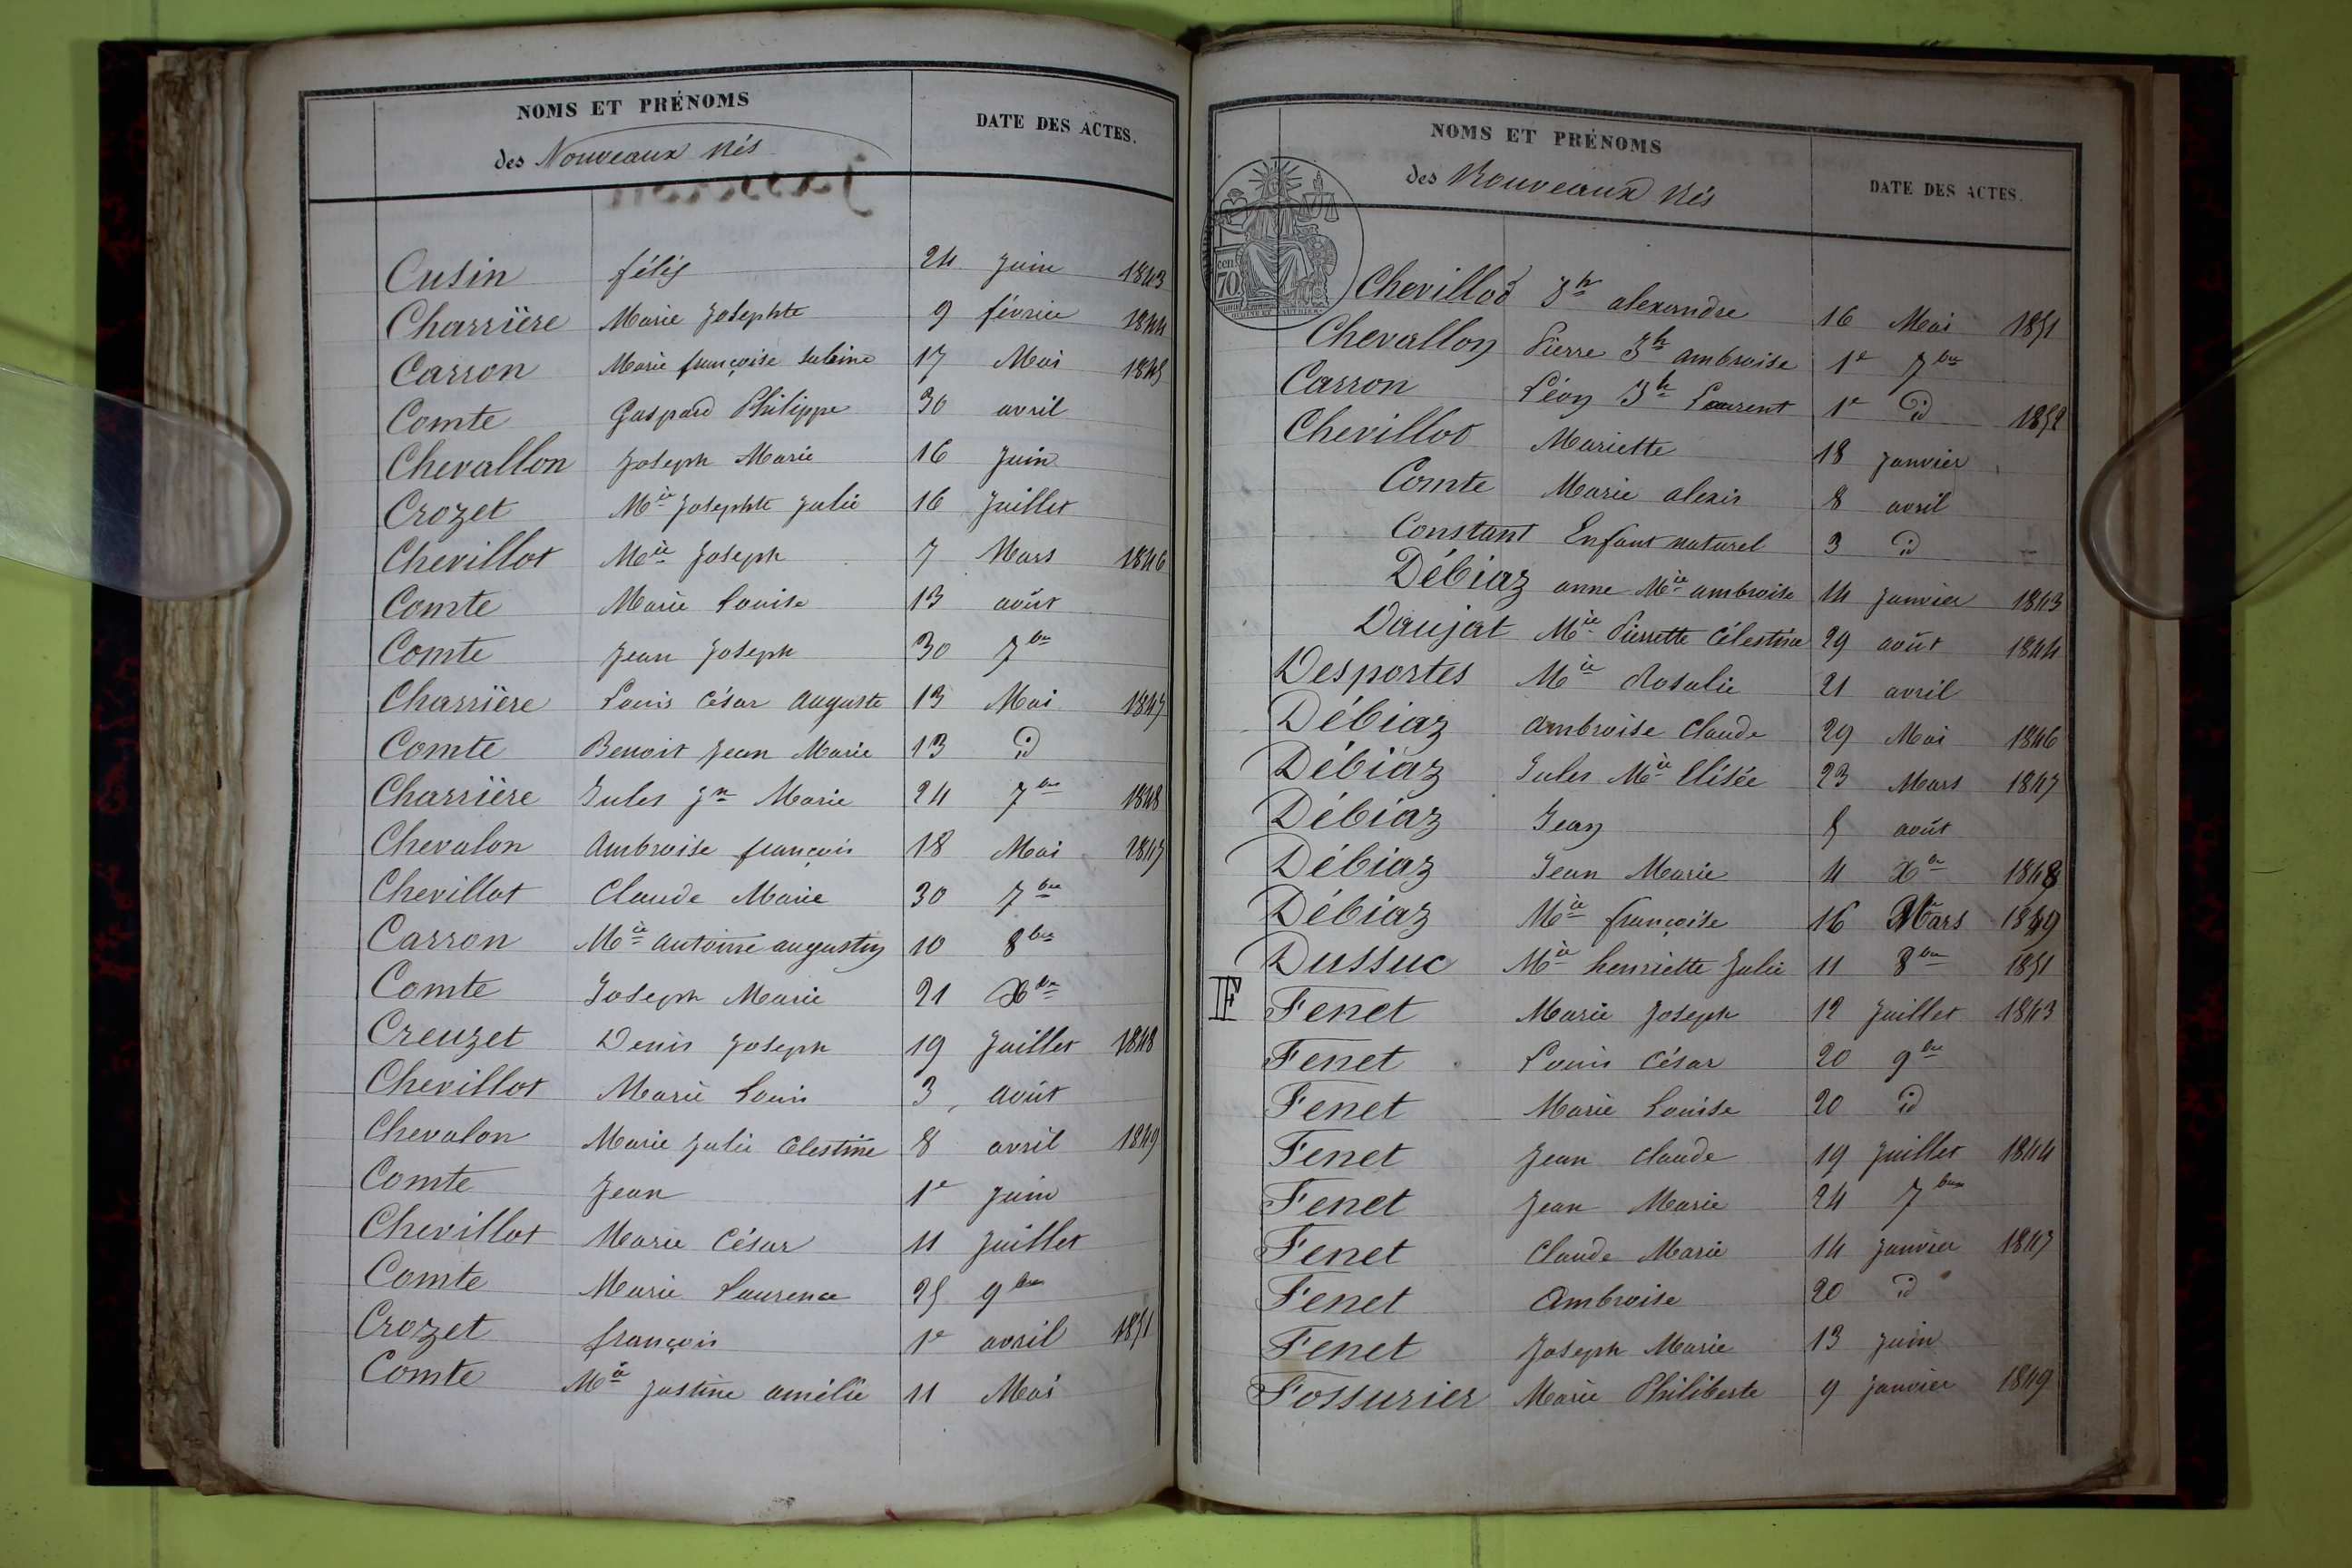 NOMS ET PRÉNOMS
DATE DES ACTES.
des Nouveaux Nés
Cusin félix 24 Juin 1843
Charrière Marie Josephte 9 février 1844
Carron Marie françoise Sabine 17 Mai 1845
Comte Gaspard Philippe 30 avril
Chevallon Joseph Marie 16 Juin
Crozet Mie Josephte Julie 16 Juillet
Chevillot Mie Joseph 7 Mars 1846
Comte Marie Louise 13 août
Comte Jean Joseph 30 7bre
Charrière Louis César Auguste 13 Mai 1847
Comte Benoit Jean Marie 13 id
Charrière Jules Jn Marie 24 7bre 1848
Chevalon Ambroise françois 18 Mai 1847
Chevillot Claude Marie 30 7bre
Carron Mie Antoine augustin 10 8bre
Comte Joseph Marie 21 Xbre
Creuzet Denis Joseph 19 Juillet 1848
Chevillot Marie Louis 3 Août
Chevalon Marie Julie Célestine 8 avril 1849
Comte Jean 1e Juin
Chevillot Marie César 11 Juillet
Comte Marie Laurence 25 9bre
Crozet françois 1e avril 1851
Comte Mie Justine amélie 11 Mai
NOMS ET PRÉNOMS
DATE DES ACTES.
des Nouveaux Nés
70 cen
Chevillod Jh alexandre 16 Mai 1851
Chevallon Pierre Jh ambroise 1e 7bre
Carron Léon Jh Laurent 1e id 1852
Chevillot Mariette 18 Janvier
Comte Marie alexis 8 avril
Constant Enfant naturel 3 id
Débiaz anne Mie ambroise 14 Janvier 1843
Daujat Mie Pierrette Célestine 29 août 1844
Desportes Mie Rosalie 21 avril
Débiaz Ambroise Claude 29 Mai 1846
Débiaz Jules Mie Elisée 23 Mars 1847
Débiaz Jean 5 août
Débiaz Jean Marie 4 Xbre 1848
Débiaz Mie françoise 16 Mars 1849
Dussuc Mie henriette Julie 11 8bre 1851
F Fenet Marie Joseph 12 Juillet 1843
Fenet Louis César 20 9bre
Fenet Marie Louise 20 id
Fenet Jean Claude 19 Juillet 1844
Fenet Jean Marie 24 7bre
Fenet Claude Marie 14 Janvier 1847
Fenet Ambroise 20 id
Fenet Joseph Marie 13 Juin
Fossurier Marie Philiberte 9 Janvier 1849